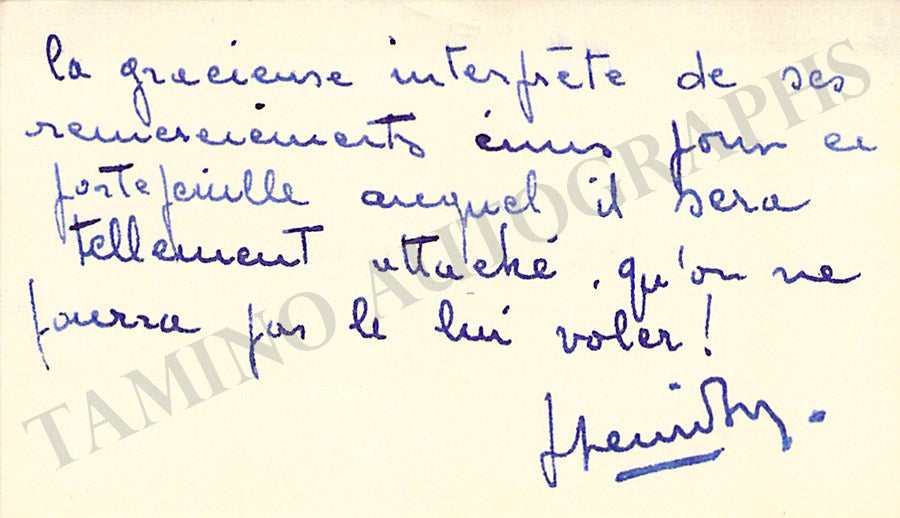 la gracieuse interprète de ses
remerciements émus pour ce
portefeuille auquel il sera
tellement attaché, qu'on ne
pourra pas le lui voler !
TAMINO AUTOGRAPHS